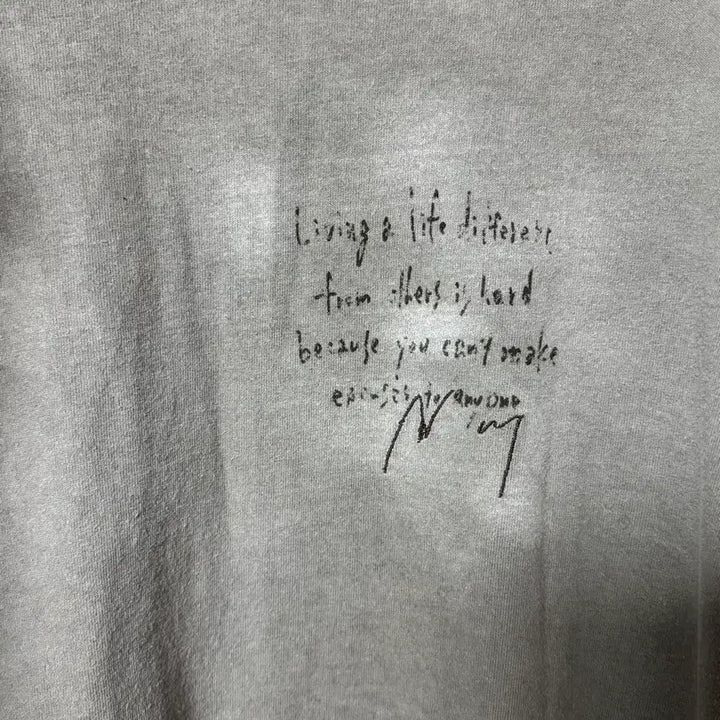 Living a life different
from others is hard
because you can't make
excuses to anyone